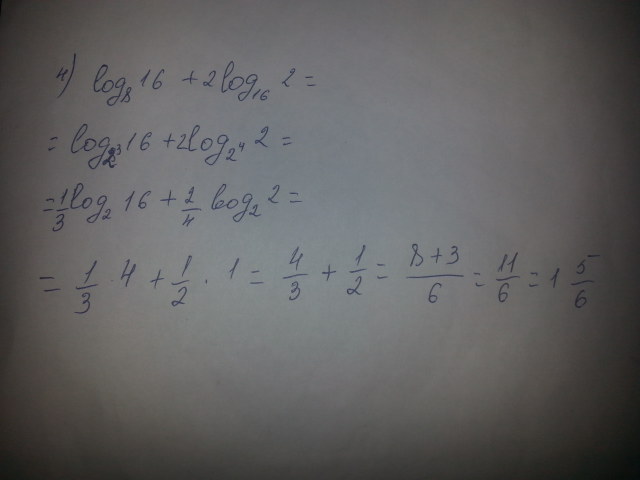 4) log₈ 16 + 2log₁₆ 2 =
= log₂³ 16 + 2log₂⁴ 2 =
= 1/3 log₂ 16 + 2/4 log₂ 2 =
= 1/3 · 4 + 1/2 · 1 = 4/3 + 1/2 = (8+3)/6 = 11/6 = 1 5/6